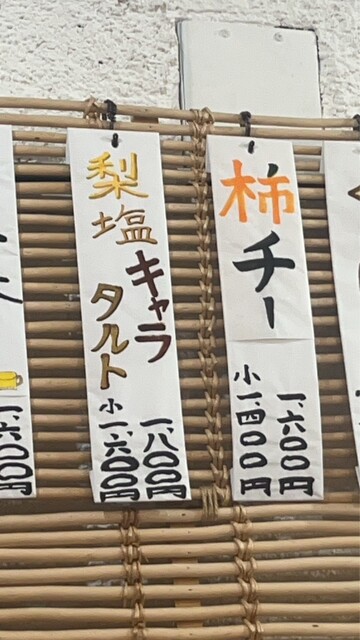 柿チー
一、六〇〇円
小一、四〇〇円
梨
塩キャラ
タルト
一、八〇〇円
小一、六〇〇円
一、六〇〇円